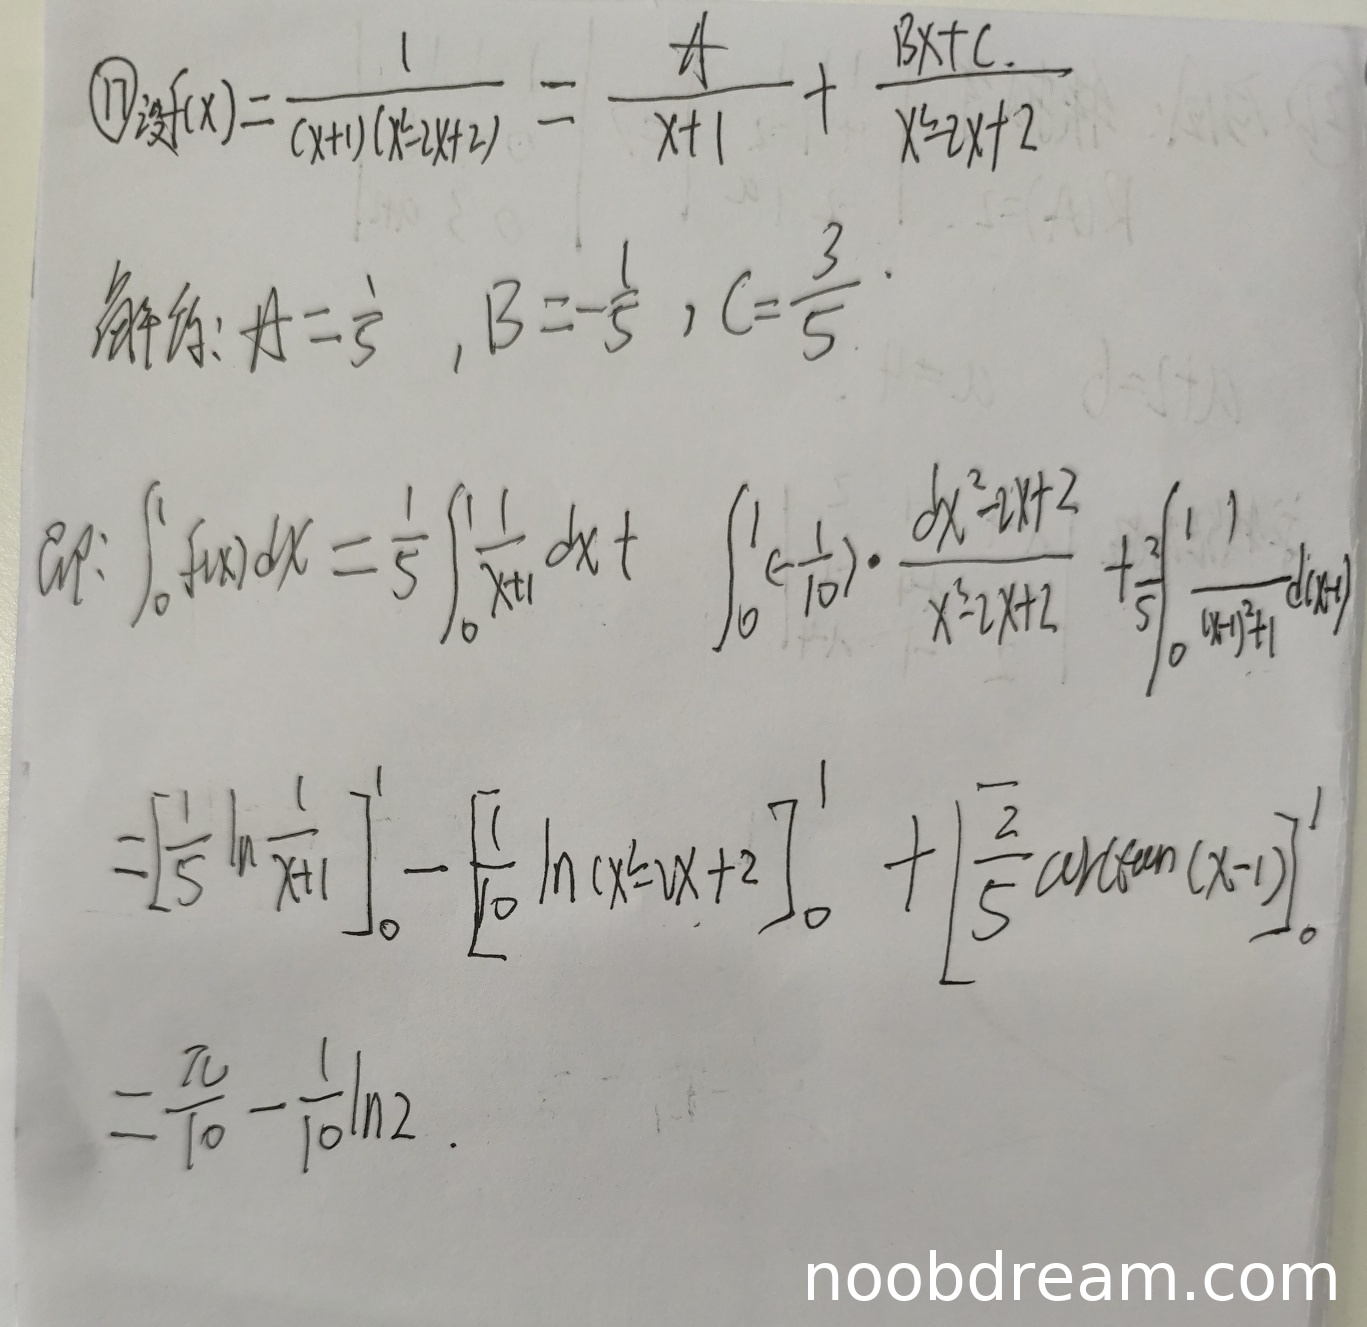 ⑰设f(x) = 1/((x+1)(x²-2x+2)) = A/(x+1) + (Bx+C.)/(x²-2x+2)
解得: A = 1/5 , B = -1/5 , C = 3/5 .
即: ∫₀¹ f(x) dx = 1/5 ∫₀¹ 1/(x+1) dx + ∫₀¹ (-1/10)·(dx²-2x+2)/(x²-2x+2) + 2/5 ∫₀¹ 1/((x-1)²+1) d(x-1)
= [1/5 ln 1/(x+1)]₀¹ - [1/10 ln(x²-2x+2]₀¹ + [2/5 arctan(x-1)]₀¹
= π/10 - 1/10 ln2 .
noobdream.com